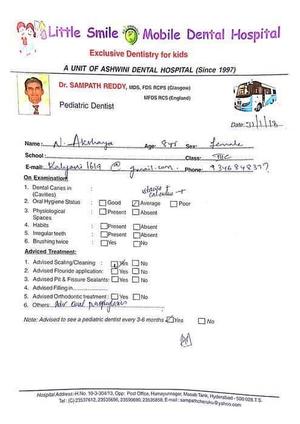 Little Smile Mobile Dental Hospital
Exclusive Dentistry for kids
A UNIT OF ASHWINI DENTAL HOSPITAL (Since 1997)
Dr. SAMPATH REDDY, MDS, FDS RCPS (Glasgow)
MFDS RCS (England)
Pediatric Dentist
Date: 31/1/18
Name: N. Akshaya Age: 8yr Sex: female
School: Class:
E-mail: Kalyani1619@gmail.com Phone: 9346848377
On Examination:
1. Dental Caries in (Cavities) stains + calculus +
2. Oral Hygiene Status : Good Average Poor
3. Physiological Spaces : Present Absent
4. Habits : Present Absent
5. Irregular teeth : Present Absent
6. Brushing twice : Yes No
Adviced Treatment:
1. Advised Scaling/Cleaning : Yes No
2. Advised Flouride application: Yes No
3. Advised Pit & Fissure Sealants: Yes No
4. Advised Filling in
5. Advised Orthodontic treatment : Yes No
6. Others: Adv oral prophylaxis
Note: Advised to see a pediatric dentist every 3-6 months Yes No
Hospital Address: H.No. 10-3-304/13, Opp: Post Office, Humayunnagar, Masab Tank, Hyderabad - 500 028 T.S.
Tel: (C) 23537412, 23535656, 23590690, 23535858, E-mail: sampathcheruku@yahoo.com